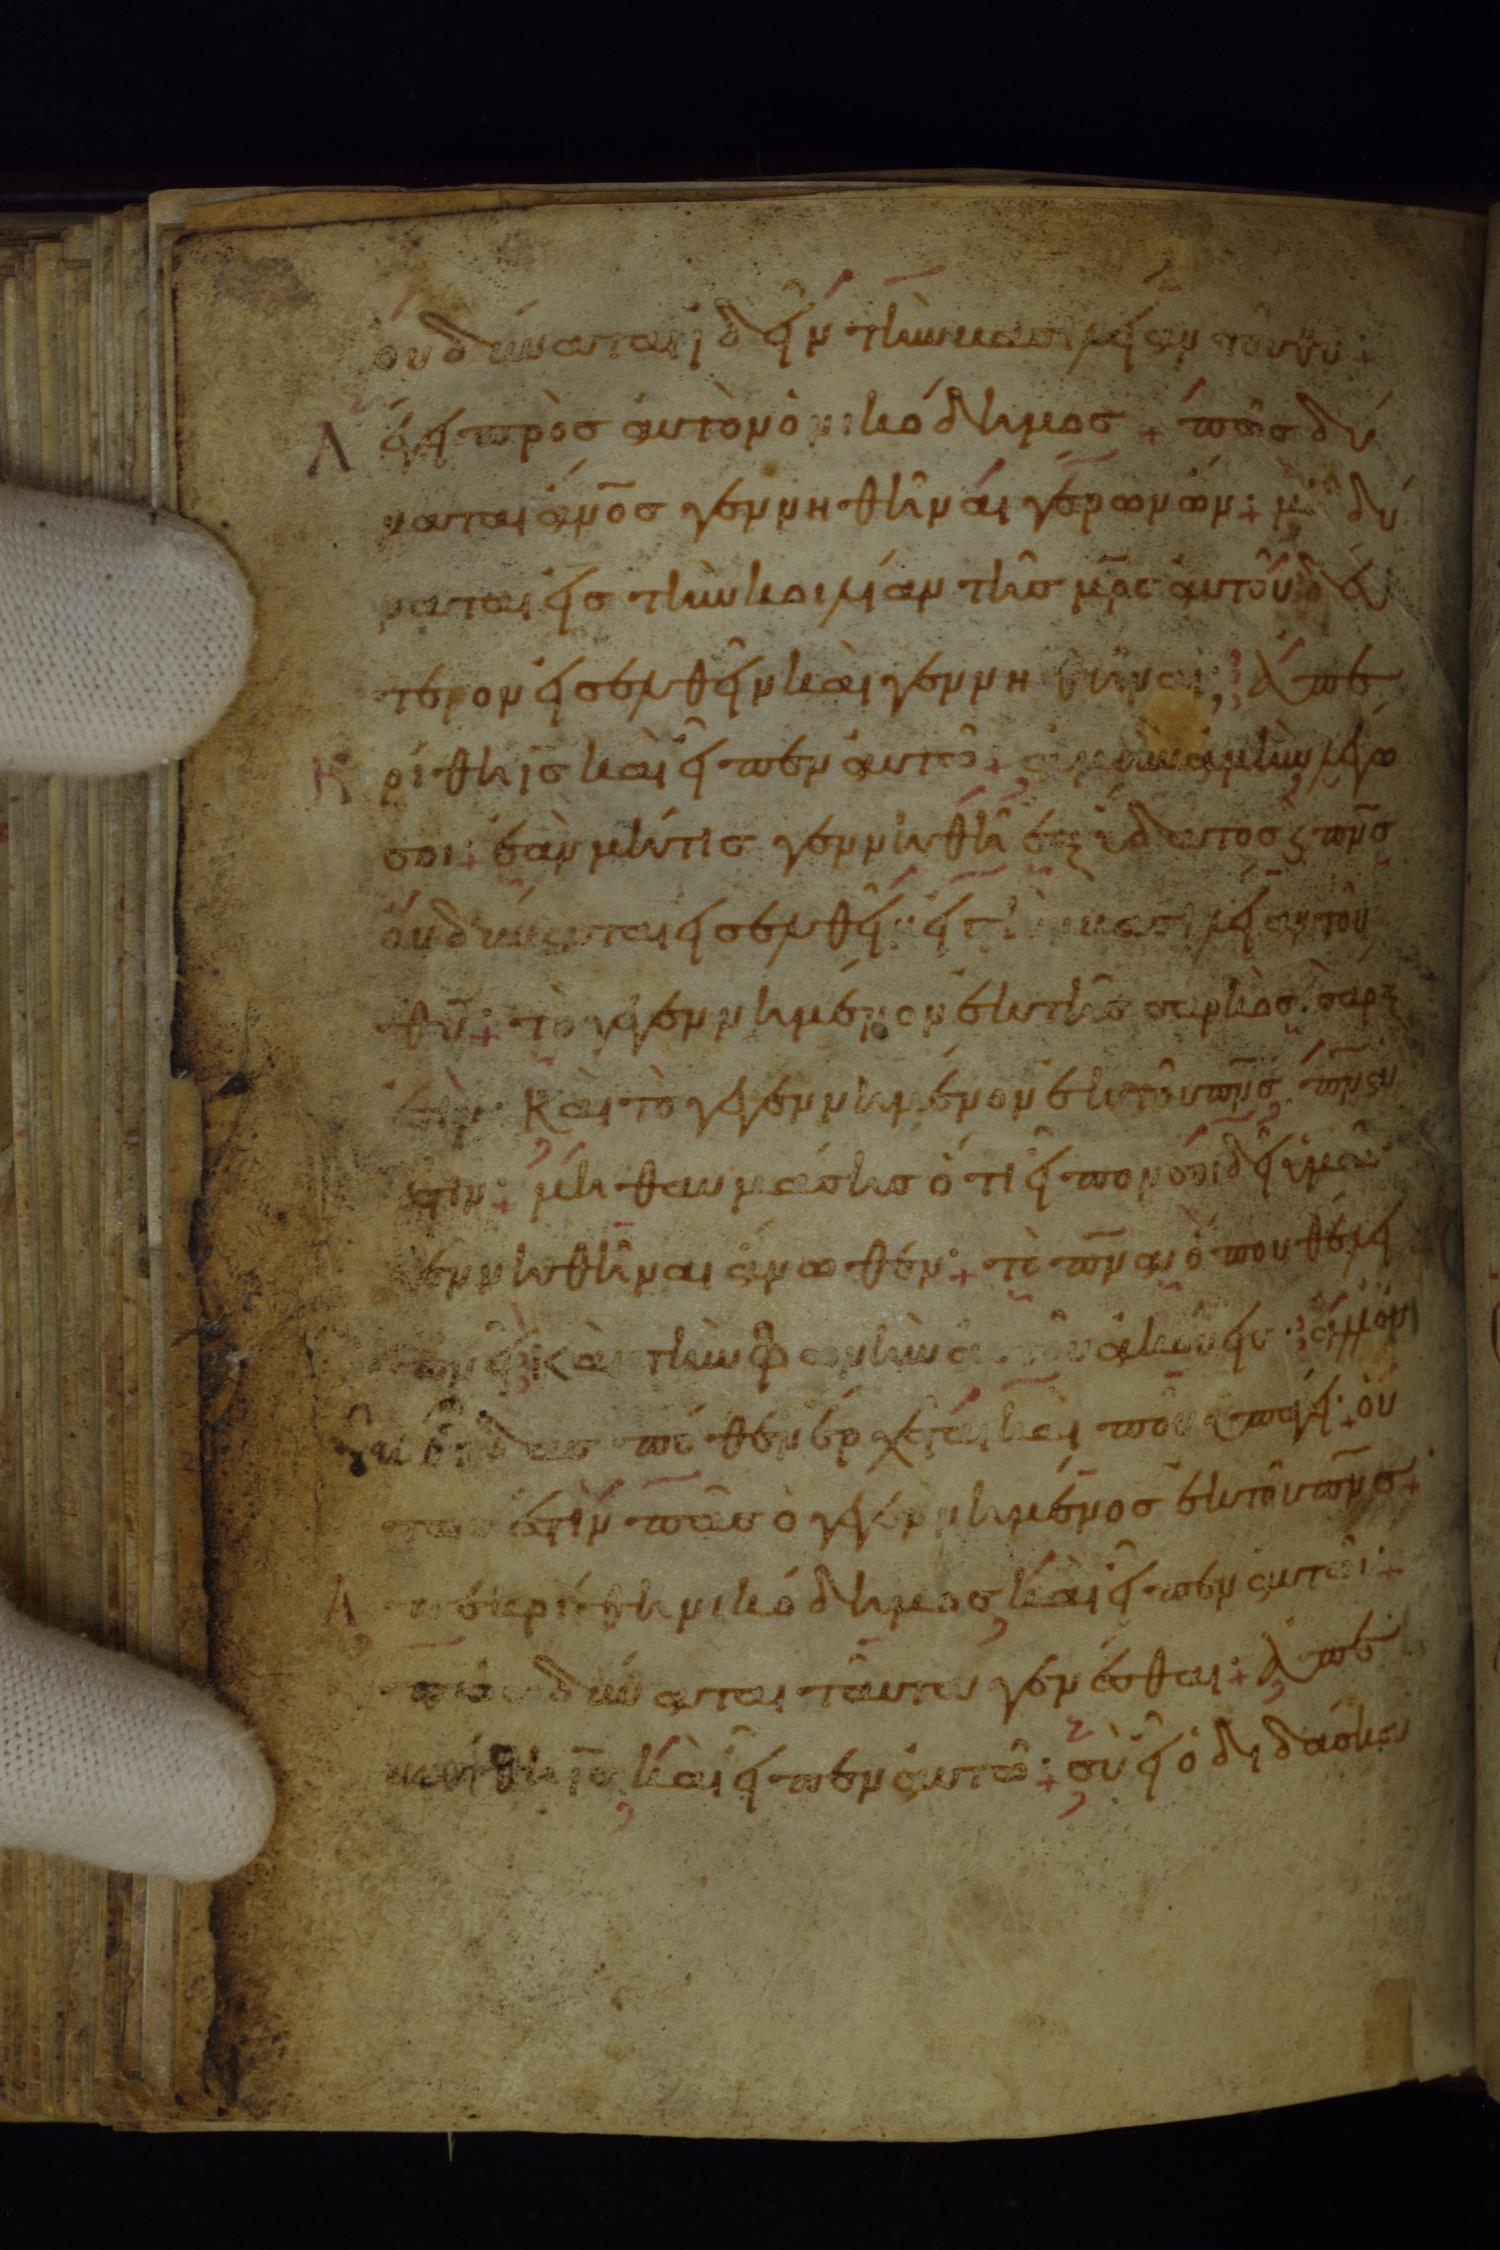 οὐ δύναται ἰδεῖν τὴν βασιλείαν τοῦ θυ +
Λέγει πρὸς αὐτὸν ὁ νικόδημος + πῶς δύ
ναται ἄνος γεννηθῆναι γέρων ὤν + μὴ δύ
ναται εἰς τὴν κοιλίαν τῆς μρς αὐτοῦ δεύ
τερον εἰσελθεῖν καὶ γεννηθῆναι; ἀπε
Κρίθη ις καὶ εἶπεν αὐτῶ + ἀμὴν ἀμὴν λέγω
σοι + ἐὰν μή τις γεννηθῆ ἐξ ὕδατος ϗ πνς
οὐ δύναται εἰσελθεῖν εἰς τὴν βασιλείαν τοῦ
θυ + τὸ γεγεννημένον ἐκ τῆς σαρκὸς σάρξ
ἐστιν· Καὶ τὸ γεγεννημένον ἐκ τοῦ πνς πνα ἐ
στιν + μὴ θαυμάσης ὅτι εἶπόν σοι δεῖ ὑμᾶς
γεννηθῆναι ἄνωθεν + τὸ πνα ὅπου θέλει
πνεῖ Καὶ τὴν φωνὴν αὐτοῦ ἀκούεις· ἀλλ'
οὐκ οἶδας πόθεν ἔρχεται καὶ ποῦ ὑπάγει + οὕ
τως ἐστὶν πᾶς ὁ γεγεννημένος ἐκ τοῦ πνς +
Ἀπεκρίθη νικόδημος καὶ εἶπεν αὐτῶ +
πῶς δύναται ταῦτα γενέσθαι + ἀπε
κρίθη ις καὶ εἶπεν αὐτῶ + σὺ εἶ ὁ διδάσκα